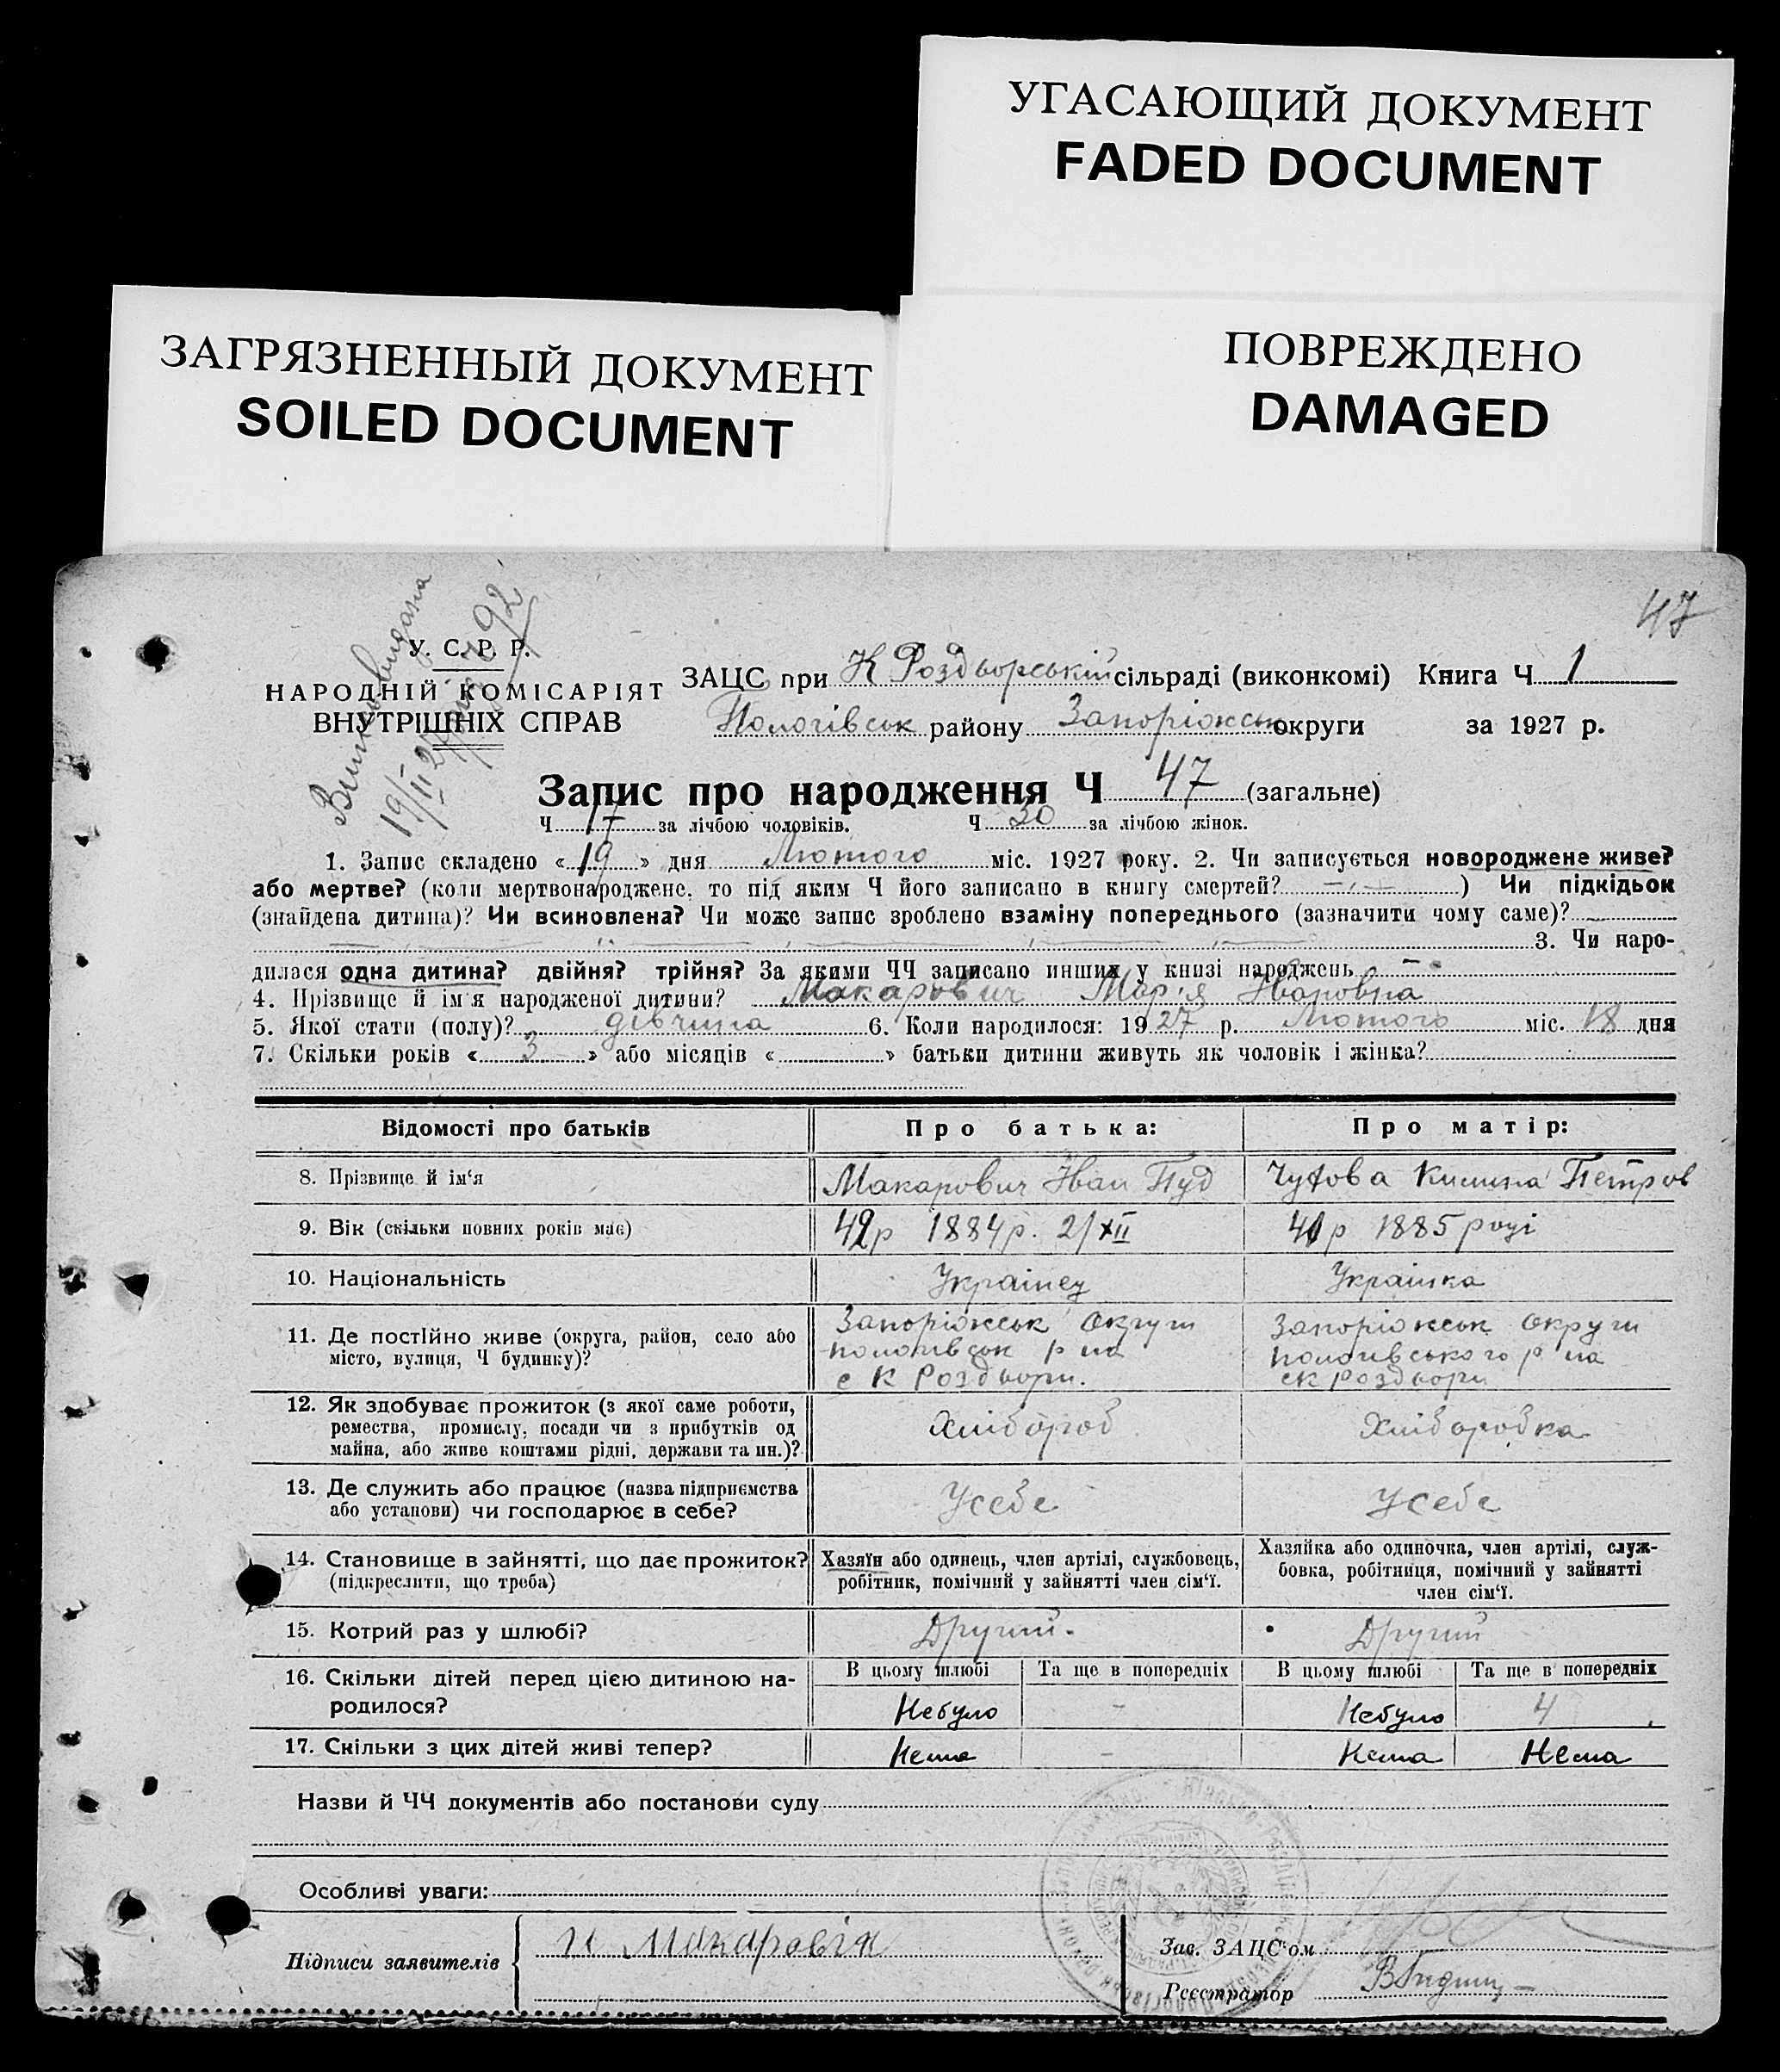 УГАСАЮЩИЙ ДОКУМЕНТ
FADED DOCUMENT
ЗАГРЯЗНЕННЫЙ ДОКУМЕНТ
SOILED DOCUMENT
ПОВРЕЖДЕНО
DAMAGED
47
У. С. Р. Р.
НАРОДНІЙ КОМІСАРІЯТ
ВНУТРІШНІХ СПРАВ
видана
19/II 27 р. 92
ЗАЦС при К Роздорській сільраді (виконкомі) Книга Ч 1
Пологівськ району Запоріжськ округи за 1927 р.
Запис про народження Ч 47 (загальне)
Ч 17 за лічбою чоловіків. Ч 30 за лічбою жінок.
1. Запис складено « 19 » дня Лютого міс. 1927 року. 2. Чи записується новороджене живе?
або мертве? (коли мертвонароджене, то під яким Ч його записано в книгу смертей? ) Чи підкідьок
(знайдена дитина)? Чи всиновлена? Чи може запис зроблено взаміну попереднього (зазначити чому саме)?
3. Чи наро-
дилася одна дитина? двійня? трійня? За якими ЧЧ записано инших у книзі народжень -
4. Прізвище й ім'я народженої дитини? Макарович Мар'я Ивановна
5. Якої стати (полу)? дівчина 6. Коли народилося: 1927 р. Лютого міс. 18 дня
7. Скільки років « 3 » або місяців « » батьки дитини живуть як чоловік і жінка?
Відомості про батьків Про батька: Про матір:
8. Прізвище й ім'я Макарович Иван Пуд Петров
9. Вік (скільки повних років має) 42р 1884р. 2/XII 41р 1885 році
10. Національність Українец Українка
11. Де постійно живе (округа, район, село або Запоріжськ округи Запоріжськ округи
місто, вулиця, Ч будинку)? пологівськ р на пологівського р на
с К Роздори. с К Роздори
12. Як здобуває прожиток (з якої саме роботи,
ремества, промислу, посади чи з прибутків од Хлібороб Хлібо­робка
майна, або живе коштами рідні, держави та ин.)?
13. Де служить або працює (назва підприємства Усебе Усебе
або установи) чи господарює в себе?
14. Становище в зайнятті, що дає прожиток? Хазяїн або одинець, член артілі, службовець, Хазяйка або одиночка, член артілі, служ-
(підкреслити, що треба) робітник, помічний у зайнятті член сім'ї. бовка, робітниця, помічний у зайнятті
член сім'ї.
15. Котрий раз у шлюбі? Другий. Другий
16. Скільки дітей перед цією дитиною на- В цьому шлюбі Та ще в попередніх В цьому шлюбі Та ще в попередніх
родилося? Небуло - Небуло 4
17. Скільки з цих дітей живі тепер? Нема - Нема Нема
Назви й ЧЧ документів або постанови суду
Особливі уваги:
Підписи заявителів И Макаровік Зав. ЗАЦС'ом
Реєстратор